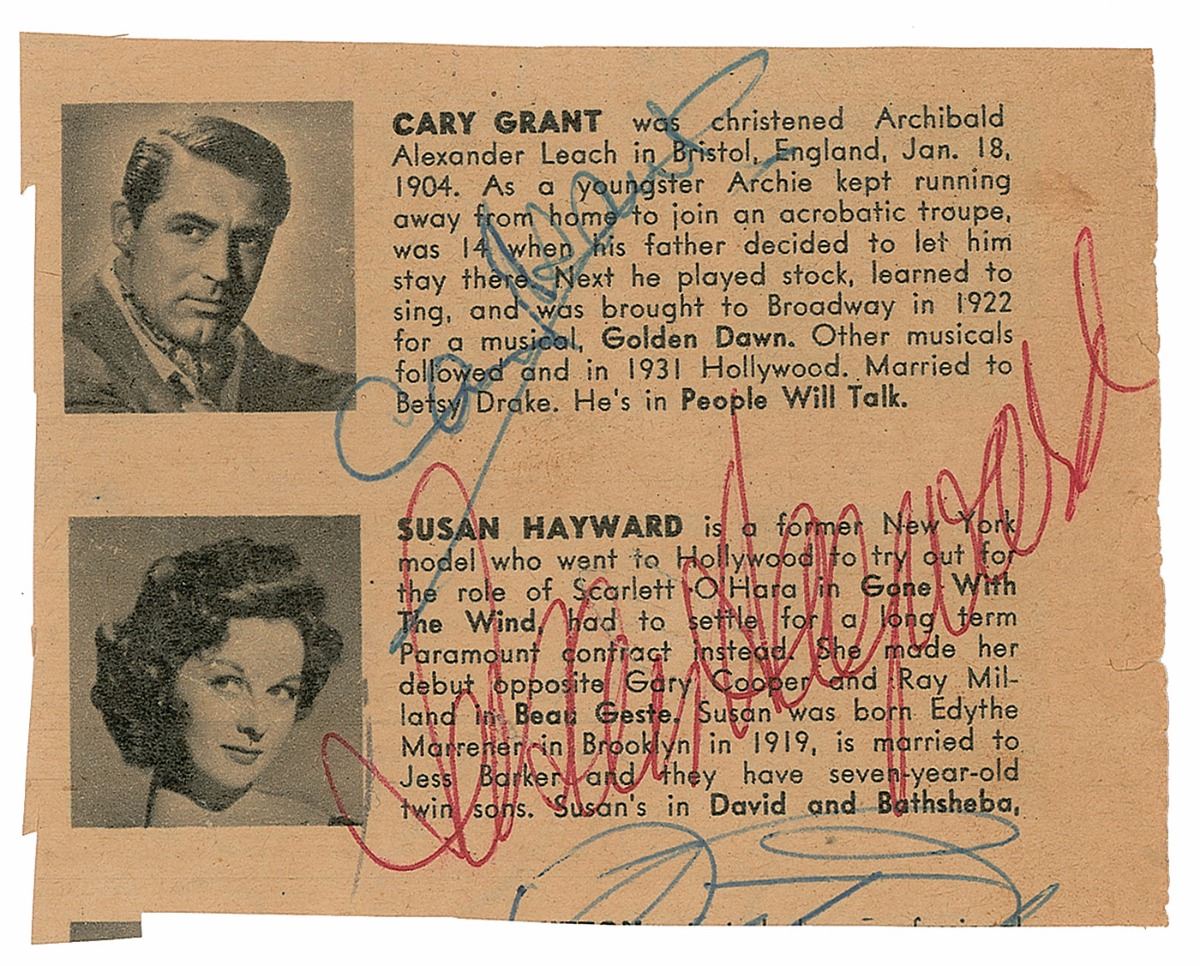 CARY GRANT was christened Archibald
Alexander Leach in Bristol, England, Jan. 18,
1904. As a youngster Archie kept running
away from home to join an acrobatic troupe,
was 14 when his father decided to let him
stay there. Next he played stock, learned to
sing, and was brought to Broadway in 1922
for a musical, Golden Dawn. Other musicals
followed and in 1931 Hollywood. Married to
Betsy Drake. He's in People Will Talk.
Cary Grant
SUSAN HAYWARD is a former New York
model who went to Hollywood to try out for
the role of Scarlett O'Hara in Gone With
The Wind, had to settle for a long term
Paramount contract instead. She made her
debut opposite Gary Cooper and Ray Mil-
land in Beau Geste. Susan was born Edythe
Marrener in Brooklyn in 1919, is married to
Jess Barker and they have seven-year-old
twin sons. Susan's in David and Bathsheba,
Susan Hayward